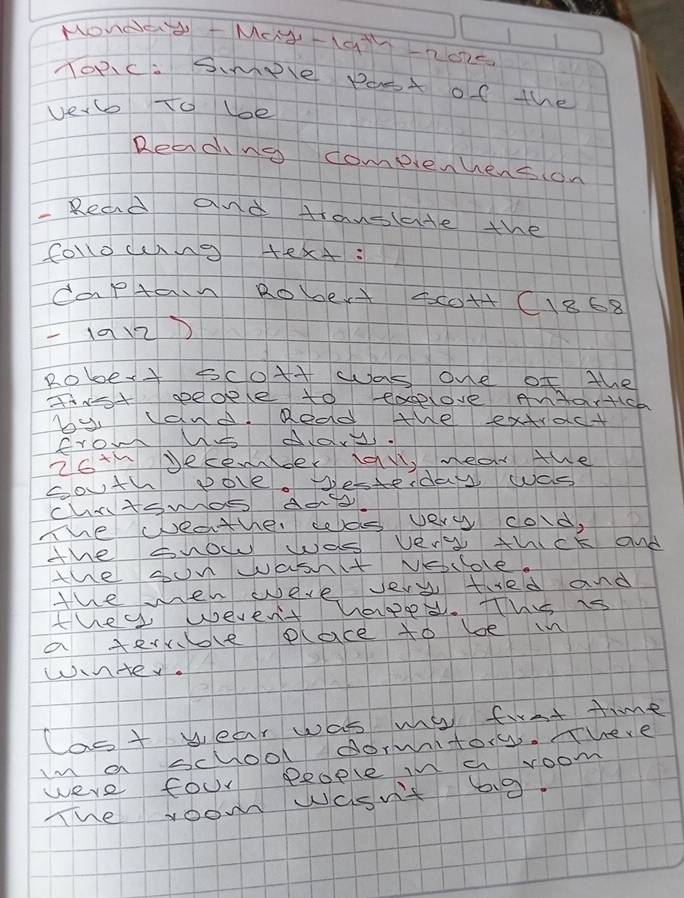 Monday - May - 19th - 2025
Topic: Simple Past of the
verb To be
Reading comprenhension
- Read and translate the
following text:
Captain Robert Scott (1868
- 1912)
Robert scott was one of the
First people to explore Antartica
by land. Read the extract
from his diary.
26th December 1911, near the
south pole. yesterday was
chritsmas day.
The weather was very cold,
the snow was very thick and
the sun wasn't visible.
the men were very tired and
they weren't happy. This is
a terrible place to be in
winter.
Last year was my first time
in a school dormitory. There
were four people in a room
The room wasn't big.